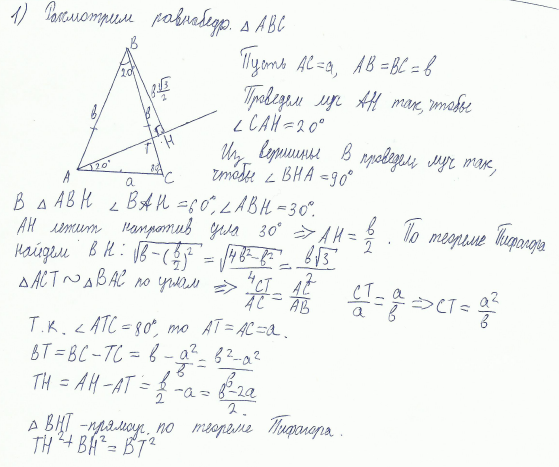 1) Рассмотрим равнобедр. △ABC
B
20°
b
b
b√3/2
T
H
A
20°
a
80°
C
Пусть AC = a, AB = BC = b
Проведем луч AH так, чтобы
∠CAH = 20°
Из вершины B проведем луч так,
чтобы ∠BHA = 90°
В △ABH ∠BAH = 60°, ∠ABH = 30°.
AH лежит напротив угла 30° ⇒ AH = b/2. По теореме Пифагора
найдем BH: √(b - (b/2)²) = √((4b² - b²)/4) = b√3/2
△ACT ~ △BAC по углам ⇒ CT/AC = AC/AB CT/a = a/b ⇒ CT = a²/b
Т.к. ∠ATC = 80°, то AT = AC = a.
BT = BC - TC = b - a²/b = (b² - a²)/b
TH = AH - AT = b/2 - a = (b - 2a)/2.
△BHT - прямоуг. по теореме Пифагора.
TH² + BH² = BT²